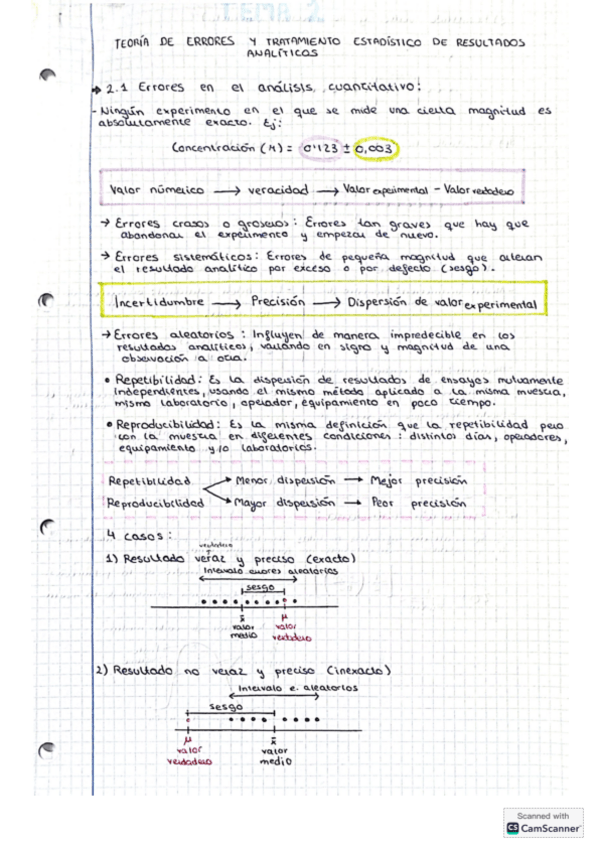 TEMA 2
TEORÍA DE ERRORES Y TRATAMIENTO ESTADÍSTICO DE RESULTADOS
ANALÍTICOS
→ 2.1 Errores en el análisis cuantitativo:
- Ningún experimento en el que se mide una cierta magnitud es
absolutamente exacto. Ej:
Concentración (M) = 0'123 ± 0,003
Valor númerico → veracidad → Valor experimental - Valor verdadero
→ Errores crasos o groseros: Errores tan graves que hay que
abandonar el experimento y empezar de nuevo.
→ Errores sistemáticos: Errores de pequeña magnitud que alteran
el resultado analítico por exceso o por defecto (sesgo).
Incertidumbre → Precisión → Dispersión de valor experimental
→ Errores aleatorios: Influyen de manera impredecible en los
resultados analíticos, variando en signo y magnitud de una
observación a otra.
• Repetibilidad: Es la dispersión de resultados de ensayos mutuamente
independientes, usando el mismo método aplicado a la misma muestra,
mismo laboratorio, operador, equipamiento en poco tiempo.
• Reproducibilidad: Es la misma definición que la repetibilidad pero
con la muestra en diferentes condiciones: distintos días, operadores,
equipamiento y/o laboratorios.
Repetibilidad → Menor dispersión → Mejor precisión
Reproducibilidad → Mayor dispersión → Peor precisión
4 casos:
verdadero
1) Resultado veraz y preciso (exacto)
Intervalo errores aleatorios
sesgo
x̄ μ
valor valor
medio verdadero
2) Resultado no veraz y preciso (inexacto)
Intervalo e. aleatorios
sesgo
μ x̄
valor valor
verdadero medio
Scanned with
CS CamScanner